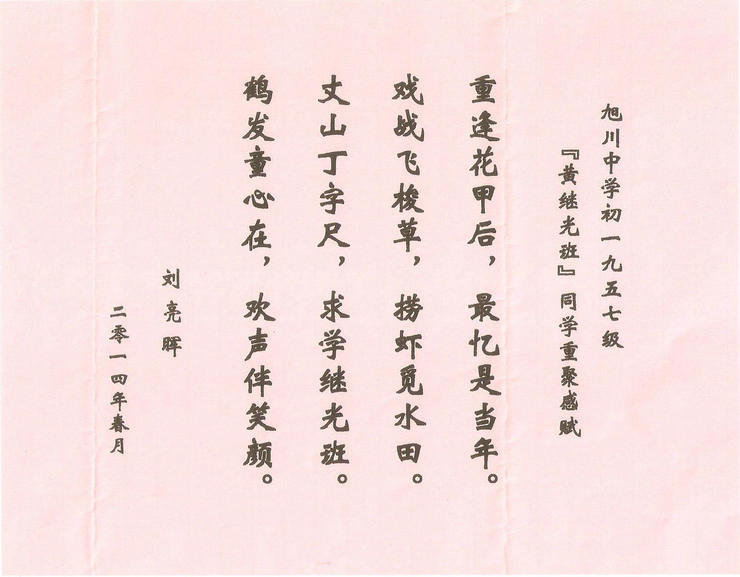 旭川中学初一九五七级
『黄继光班』同学重聚感赋
重逢花甲后，最忆是当年。
戏战飞梭草，捞虾觅水田。
丈山丁字尺，求学继光班。
鹤发童心在，欢声伴笑颜。
刘亮晖
二零一四年春月